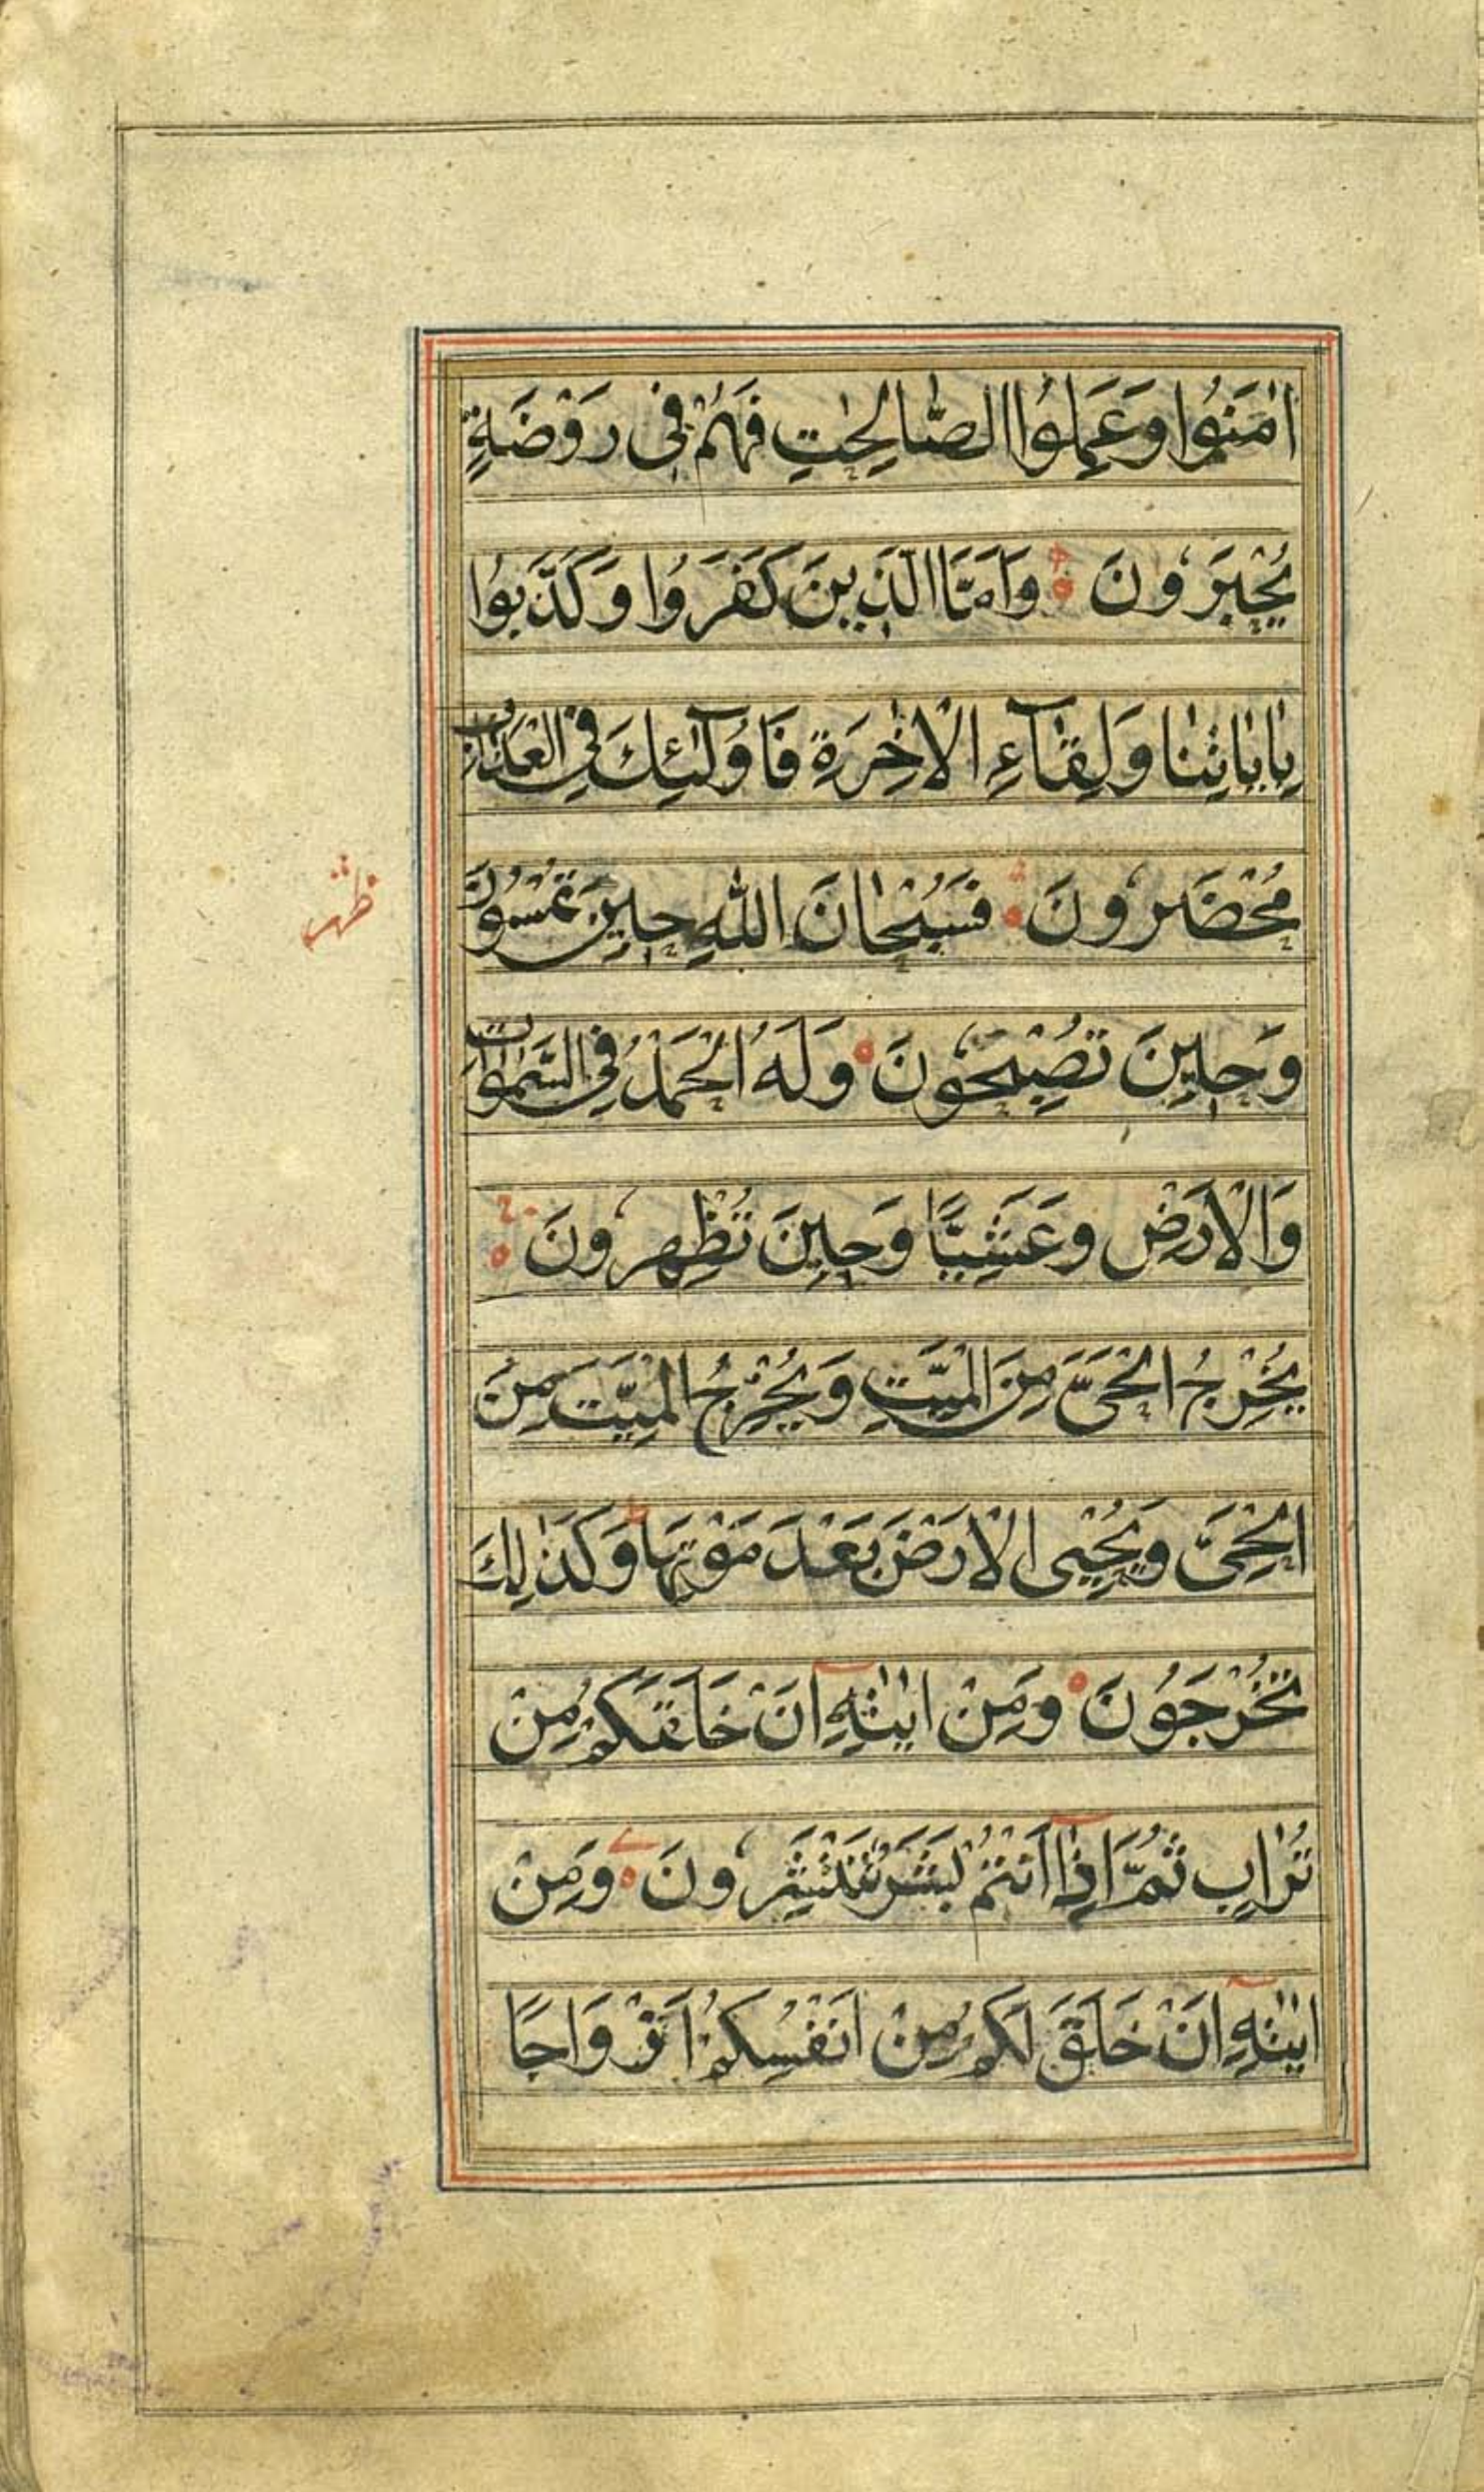 اٰمَنُوا وَعَمِلُوا الصَّالِحٰتِ فَهُمْ فِی رَوْضَةٍ
یُحْبَرُونَ وَاَمَّا الَّذِینَ کَفَرُوا وَکَذَّبُوا
بِاٰیَاتِنَا وَلِقَآءِ الْاٰخِرَةِ فَاُولٰٓئِكَ فِی الْعَذَابِ
مُحْضَرُونَ فَسُبْحَانَ اللّٰهِ حِینَ تُمْسُونَ
ظهر
وَحِینَ تُصْبِحُونَ وَلَهُ الْحَمْدُ فِی السَّمٰوَاتِ
وَالْاَرْضِ وَعَشِیًّا وَحِینَ تُظْهِرُونَ
یُخْرِجُ الْحَیَّ مِنَ الْمَیِّتِ وَیُخْرِجُ الْمَیِّتَ مِنَ
الْحَیِّ وَیُحْیِی الْاَرْضَ بَعْدَ مَوْتِهَا وَکَذٰلِكَ
تُخْرَجُونَ وَمِنْ اٰیٰتِهٖٓ اَنْ خَلَقَکُمْ مِنْ
تُرَابٍ ثُمَّ اِذَآ اَنْتُمْ بَشَرٌ تَنْتَشِرُونَ وَمِنْ
اٰیٰتِهٖٓ اَنْ خَلَقَ لَکُمْ مِنْ اَنْفُسِکُمْ اَزْوَاجًا